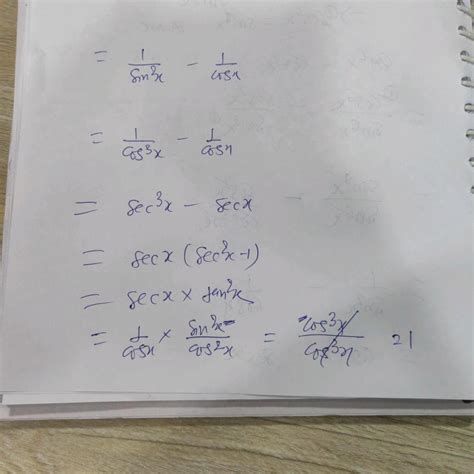 = 1/sin³x - 1/cosx
= 1/cos³x - 1/cosx
= sec³x - secx
= secx (sec²x-1)
= secx × tan²x
= 1/cosx × sin²x/cos²x = cos³x/cos³x =1